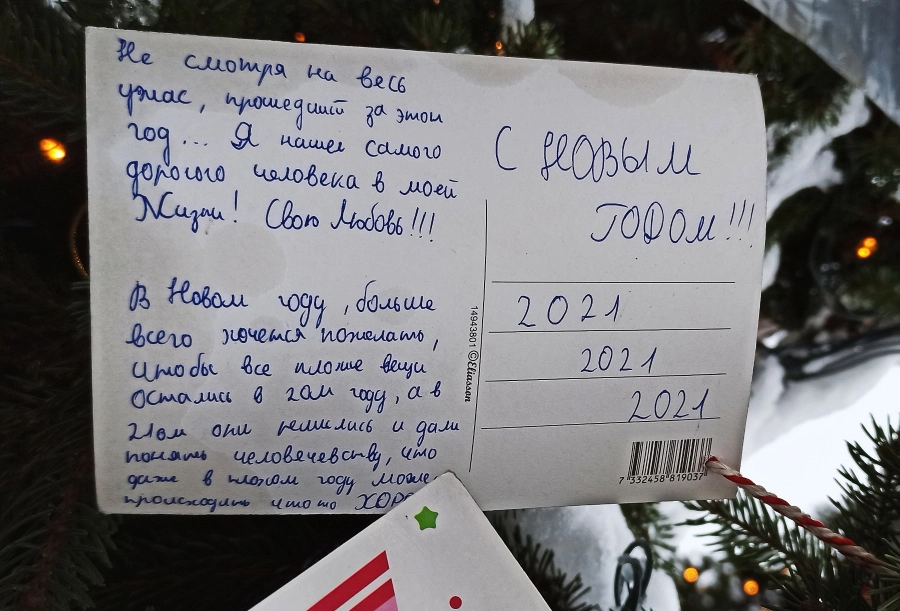 Не смотря на весь
ужас, прошедший за этот
год... Я нашел самого
дорогого человека в моей
Жизни! Свою Любовь!!!
В Новом году, больше
всего хочется пожелать,
чтобы все плохие вещи
остались в 20м году, а в
21ом они решились и дали
понять человечевству, что
даже в плохом году може
происходить что то ХОРО
С НОВЫМ
ГОДОМ!!!
2021
2021
2021
14943801 ©Eliasson
7 332458 819037